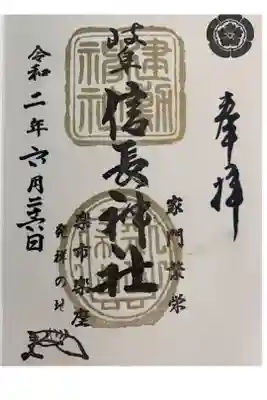 奉拝
岐阜信長神社
家門繁栄
楽市楽座
発祥の地
令和二年六月二十六日
建勲神社